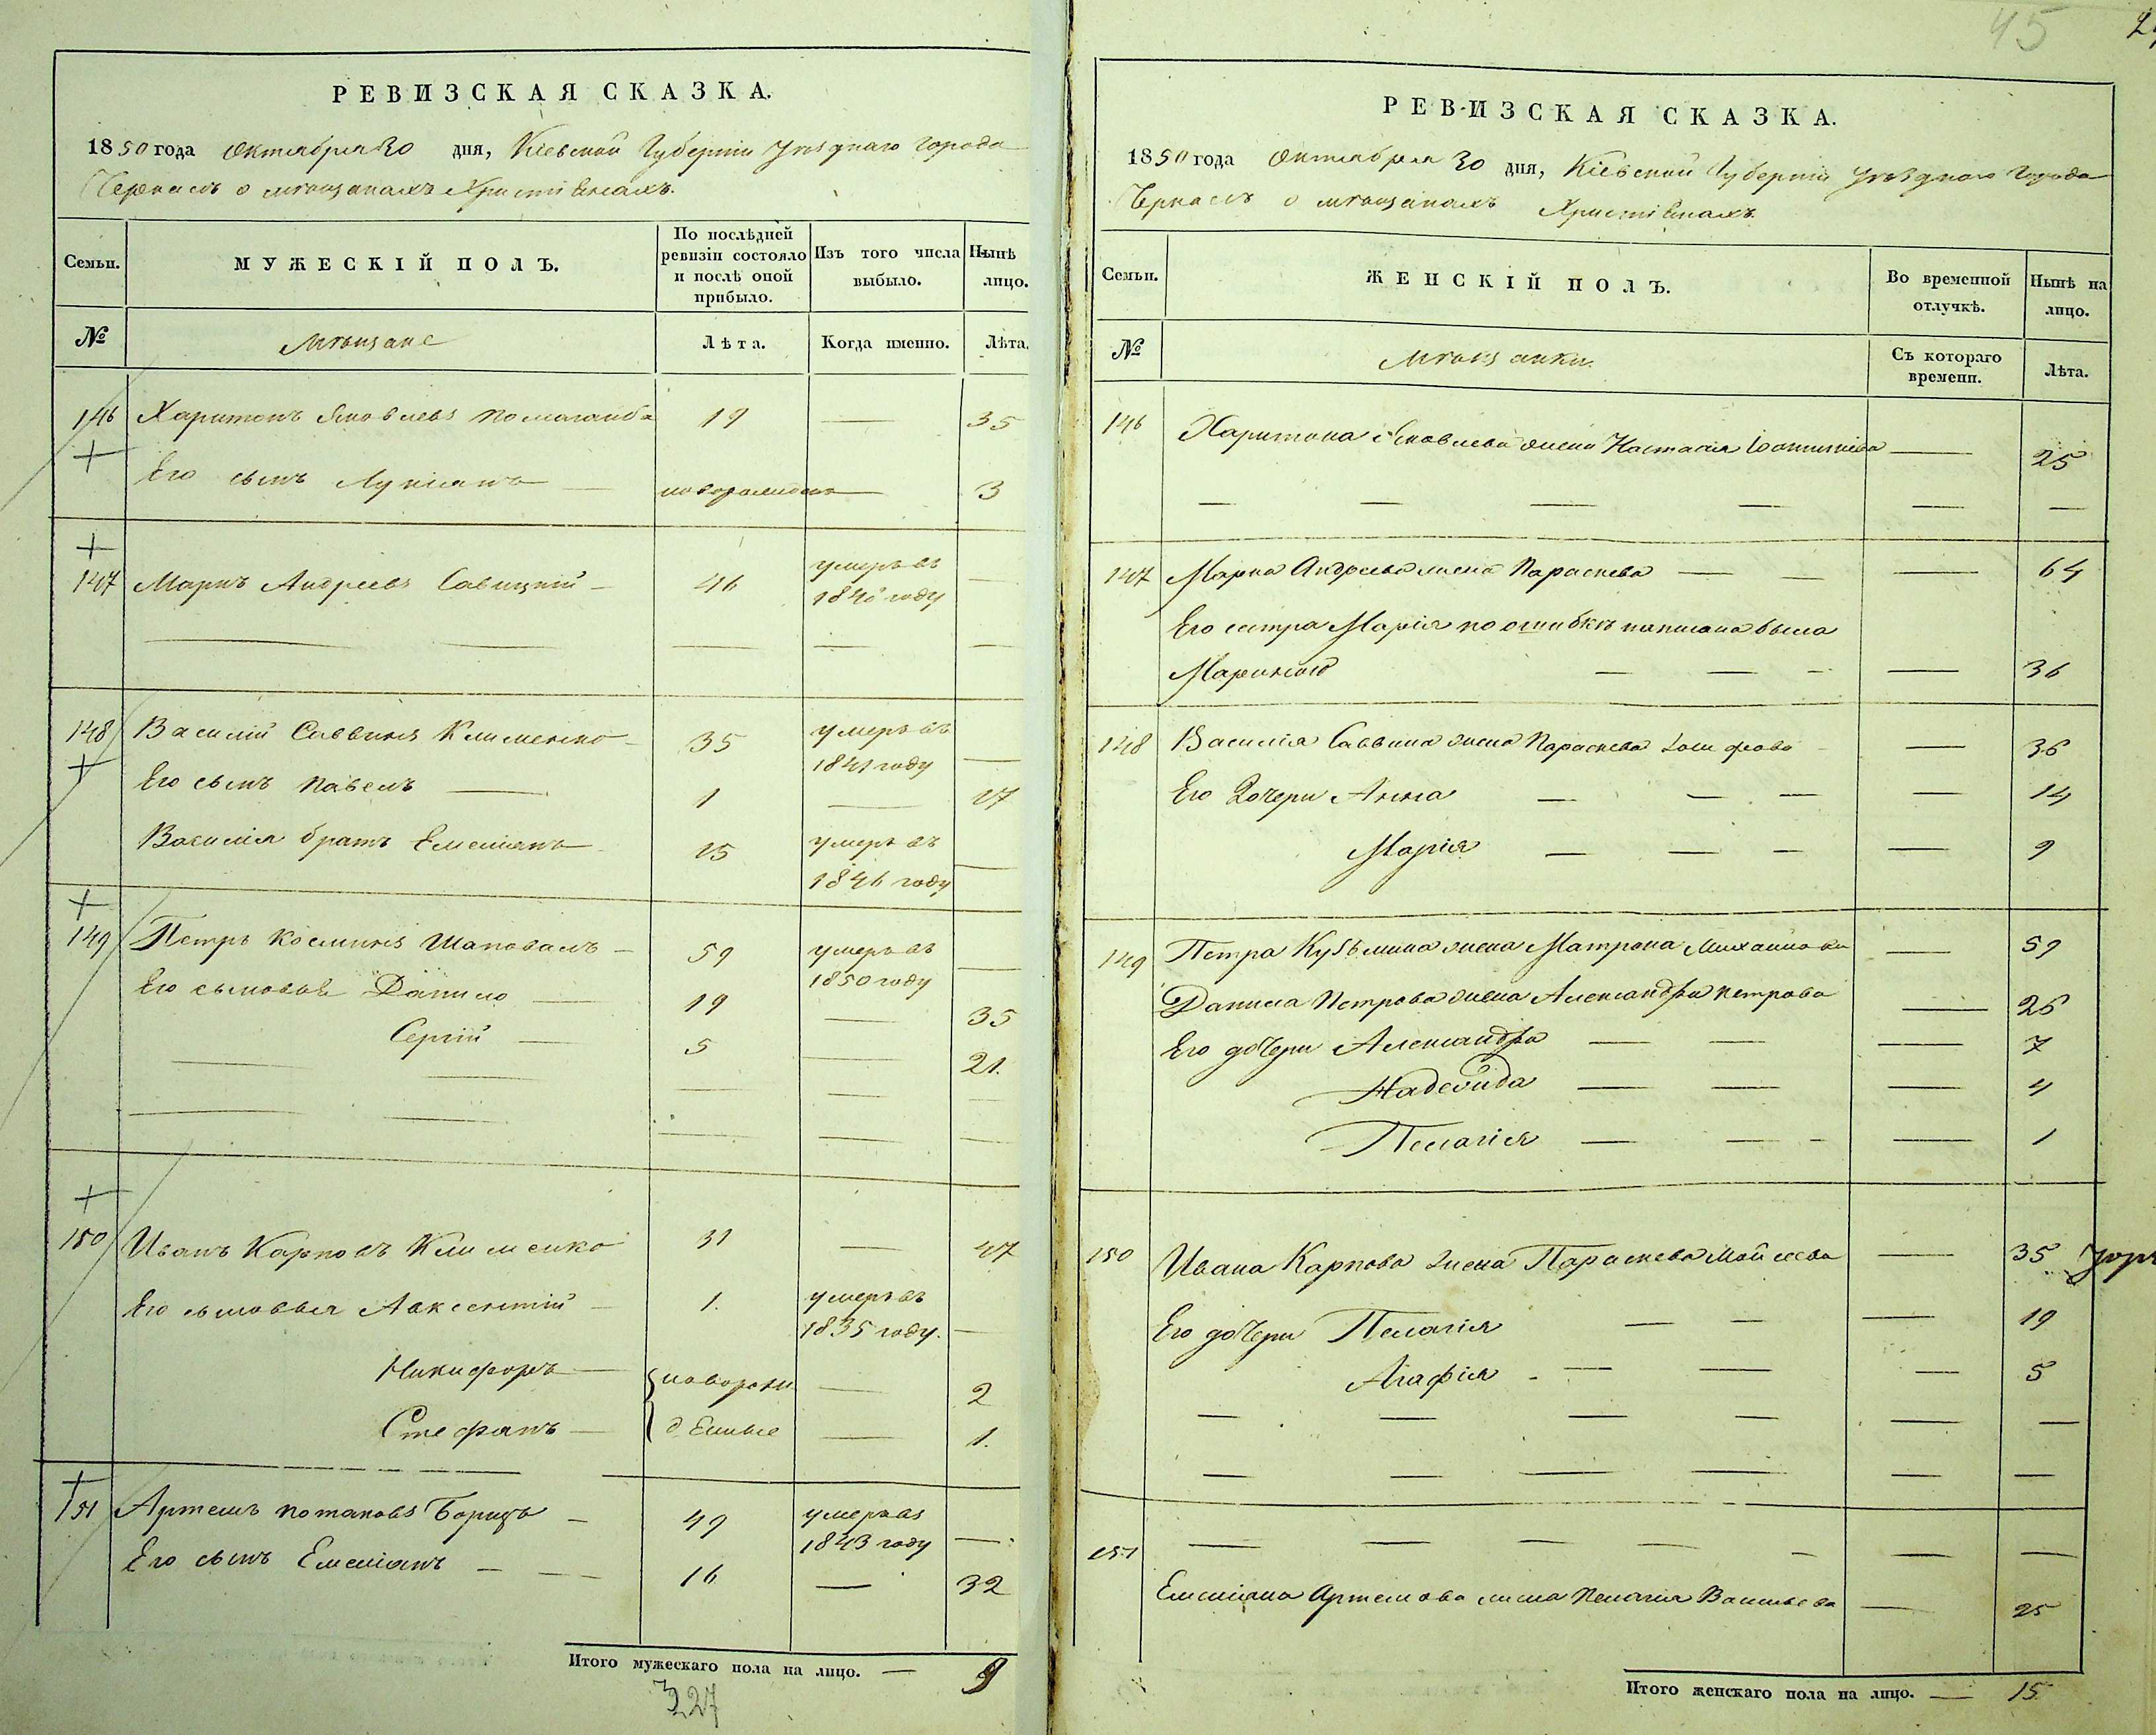 45
РЕВИЗСКАЯ СКАЗКА.
1850 года Октября 30 дня, Кіевской Губерніи Уѣзднаго Города
Черкасъ о мѣщанахъ Христіянахъ.
Семьи.
МУЖЕСКІЙ ПОЛЪ.
По послѣдней
ревизіи состояло
и послѣ оной
прибыло.
Изъ того числа
выбыло.
Нынѣ
лицо.
№
Мѣщане
Лѣта.
Когда именно.
Лѣта.
146 Харитонъ Яковлевъ 19 — 35
Его сынъ Лукіянъ — новорожденъ — 3
147 Маркъ Андреевъ Савицкій — 46 умеръ въ —
1840 году
148 Василій Саввинъ Клименко — 35 умеръ въ
1841 году —
Его сынъ Павелъ — 1 — 17
Василія братъ Емеліянъ 15 умеръ въ
1846 году —
149 Петръ Косминъ Шаповалъ — 59 умеръ въ
1850 году —
Его сыновья Данило — 19 — 35
Сергій — 5 — 21.
150 Иванъ Карповъ Клименко 31 — 47
Его сыновья Авксентій — 1. умеръ въ
1835 году. —
Никифоръ — новорож — 2
Стефанъ — денные — 1.
151 Артемъ Потаповъ — 49 умеръ въ
1843 году —
Его сынъ Емеліянъ — 16 — 32
Итого мужескаго пола на лицо. — 9
327
РЕВИЗСКАЯ СКАЗКА.
1850 года Октября 30 дня, Кіевской Губерніи Уѣзднаго Города
Черкасъ о мѣщанахъ Христіянахъ.
Семьи.
ЖЕНСКІЙ ПОЛЪ.
Во временной
отлучкѣ.
Нынѣ на
лицо.
№
Мѣщанки.
Съ котораго
времени.
Лѣта.
146 Харитона Яковлева жена Настасія — 25
147 Марка Андреева жена Параскева — — 64
Его сестра Марія по ошибкѣ написана была
Мариною — — 36
148 Василія Саввина жена Параскева — 36
Его Дочери Анна — — 14
Марія — — 9
149 Петра Кузьмина жена Матрона — 59
Данила Петрова жена Александра Петрова — 26
Его дочери Александра — — 7
Надежда — — 4
Пелагія — — 1
150 Ивана Карпова жена Параскева Мойсеева — 35
Его дочери Пелагія — — 19
Агафія — — 5
151
Емеліяна Артемова жена Пелагія Васильева — 25
Итого женскаго пола на лицо. — 15